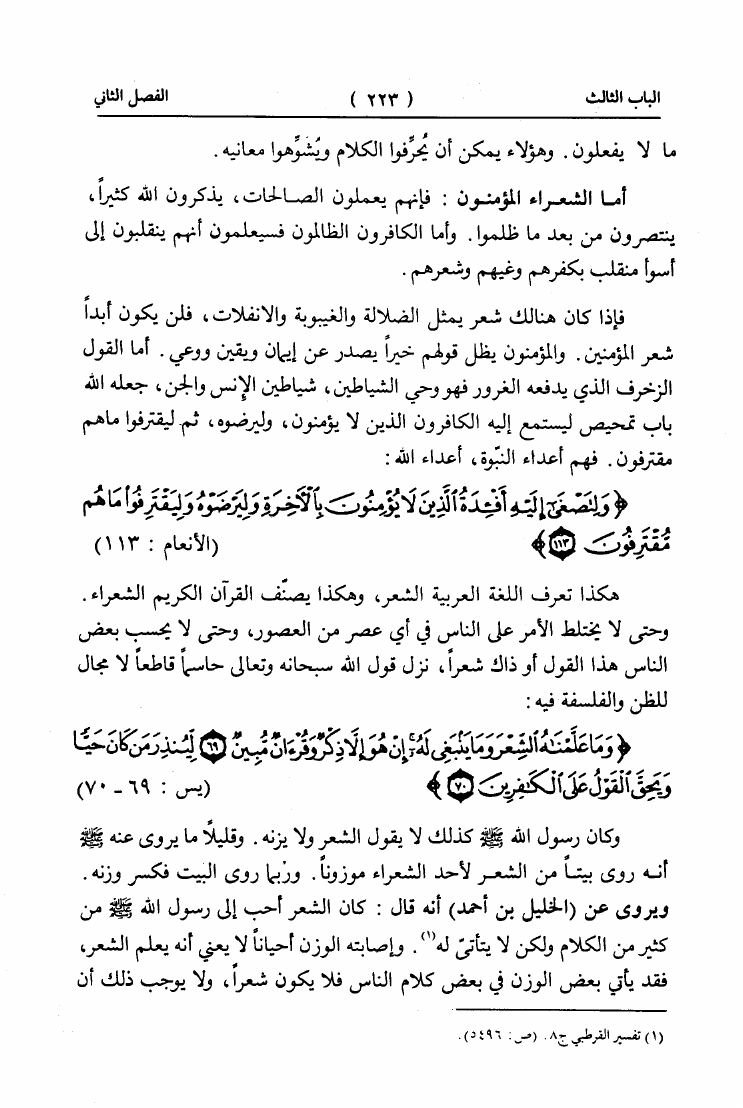 الباب الثالث ( ٢٢٣ ) الفصل الثاني
ما لا يفعلون. وهؤلاء يمكن أن يُحرِّفوا الكلام ويُشوِّهوا معانيه.
أما الشعراء المؤمنون : فإنهم يعملون الصالحات، يذكرون الله كثيراً،
ينتصرون من بعد ما ظلموا. وأما الكافرون الظالمون فسيعلمون أنهم ينقلبون إلى
أسوأ منقلب بكفرهم وغيهم وشعرهم.
فإذا كان هنالك شعر يمثل الضلالة والغيبوبة والانفلات، فلن يكون أبداً
شعر المؤمنين. والمؤمنون يظل قولهم خيراً يصدر عن إيمان ويقين ووعي. أما القول
الزخرف الذي يدفعه الغرور فهو وحي الشياطين، شياطين الإنس والجن، جعله الله
باب تمحيص ليستمع إليه الكافرون الذين لا يؤمنون، وليرضوه، ثم ليقترفوا ماهم
مقترفون. فهم أعداء النبّوة، أعداء الله:
﴿ وَلِتَصْغَىٰٓ إِلَيْهِ أَفْـِٔدَةُ ٱلَّذِينَ لَا يُؤْمِنُونَ بِٱلْـَٔاخِرَةِ وَلِيَرْضَوْهُ وَلِيَقْتَرِفُوا۟ مَا هُم
مُّقْتَرِفُونَ ١١٣ ﴾ (الأنعام : ١١٣)
هكذا تعرف اللغة العربية الشعر، وهكذا يصنّف القرآن الكريم الشعراء.
وحتى لا يختلط الأمر على الناس في أي عصر من العصور، وحتى لا يحسب بعض
الناس هذا القول أو ذاك شعراً، نزل قول الله سبحانه وتعالى حاسماً قاطعاً لا مجال
للظن والفلسفة فيه:
﴿ وَمَا عَلَّمْنَٰهُ ٱلشِّعْرَ وَمَا يَنۢبَغِى لَهُۥٓ إِنْ هُوَ إِلَّا ذِكْرٌ وَقُرْءَانٌ مُّبِينٌ ٦٩ لِّيُنذِرَ مَن كَانَ حَيًّا
وَيَحِقَّ ٱلْقَوْلُ عَلَى ٱلْكَٰفِرِينَ ٧٠ ﴾ (يس : ٦٩ - ٧٠)
وكان رسول الله ﷺ كذلك لا يقول الشعر ولا يزنه. وقليلاً ما يروى عنه ﷺ
أنه روى بيتاً من الشعر لأحد الشعراء موزوناً. وربما روى البيت فكسر وزنه.
ويروى عن (الخليل بن أحمد) أنه قال : كان الشعر أحب إلى رسول الله ﷺ من
كثير من الكلام ولكن لا يتأتىّ له(١). وإصابته الوزن أحياناً لا يعني أنه يعلم الشعر،
فقد يأتي بعض الوزن في بعض كلام الناس فلا يكون شعراً، ولا يوجب ذلك أن
(١) تفسير القرطبي ج٨. (ص: ٥٤٩٦).